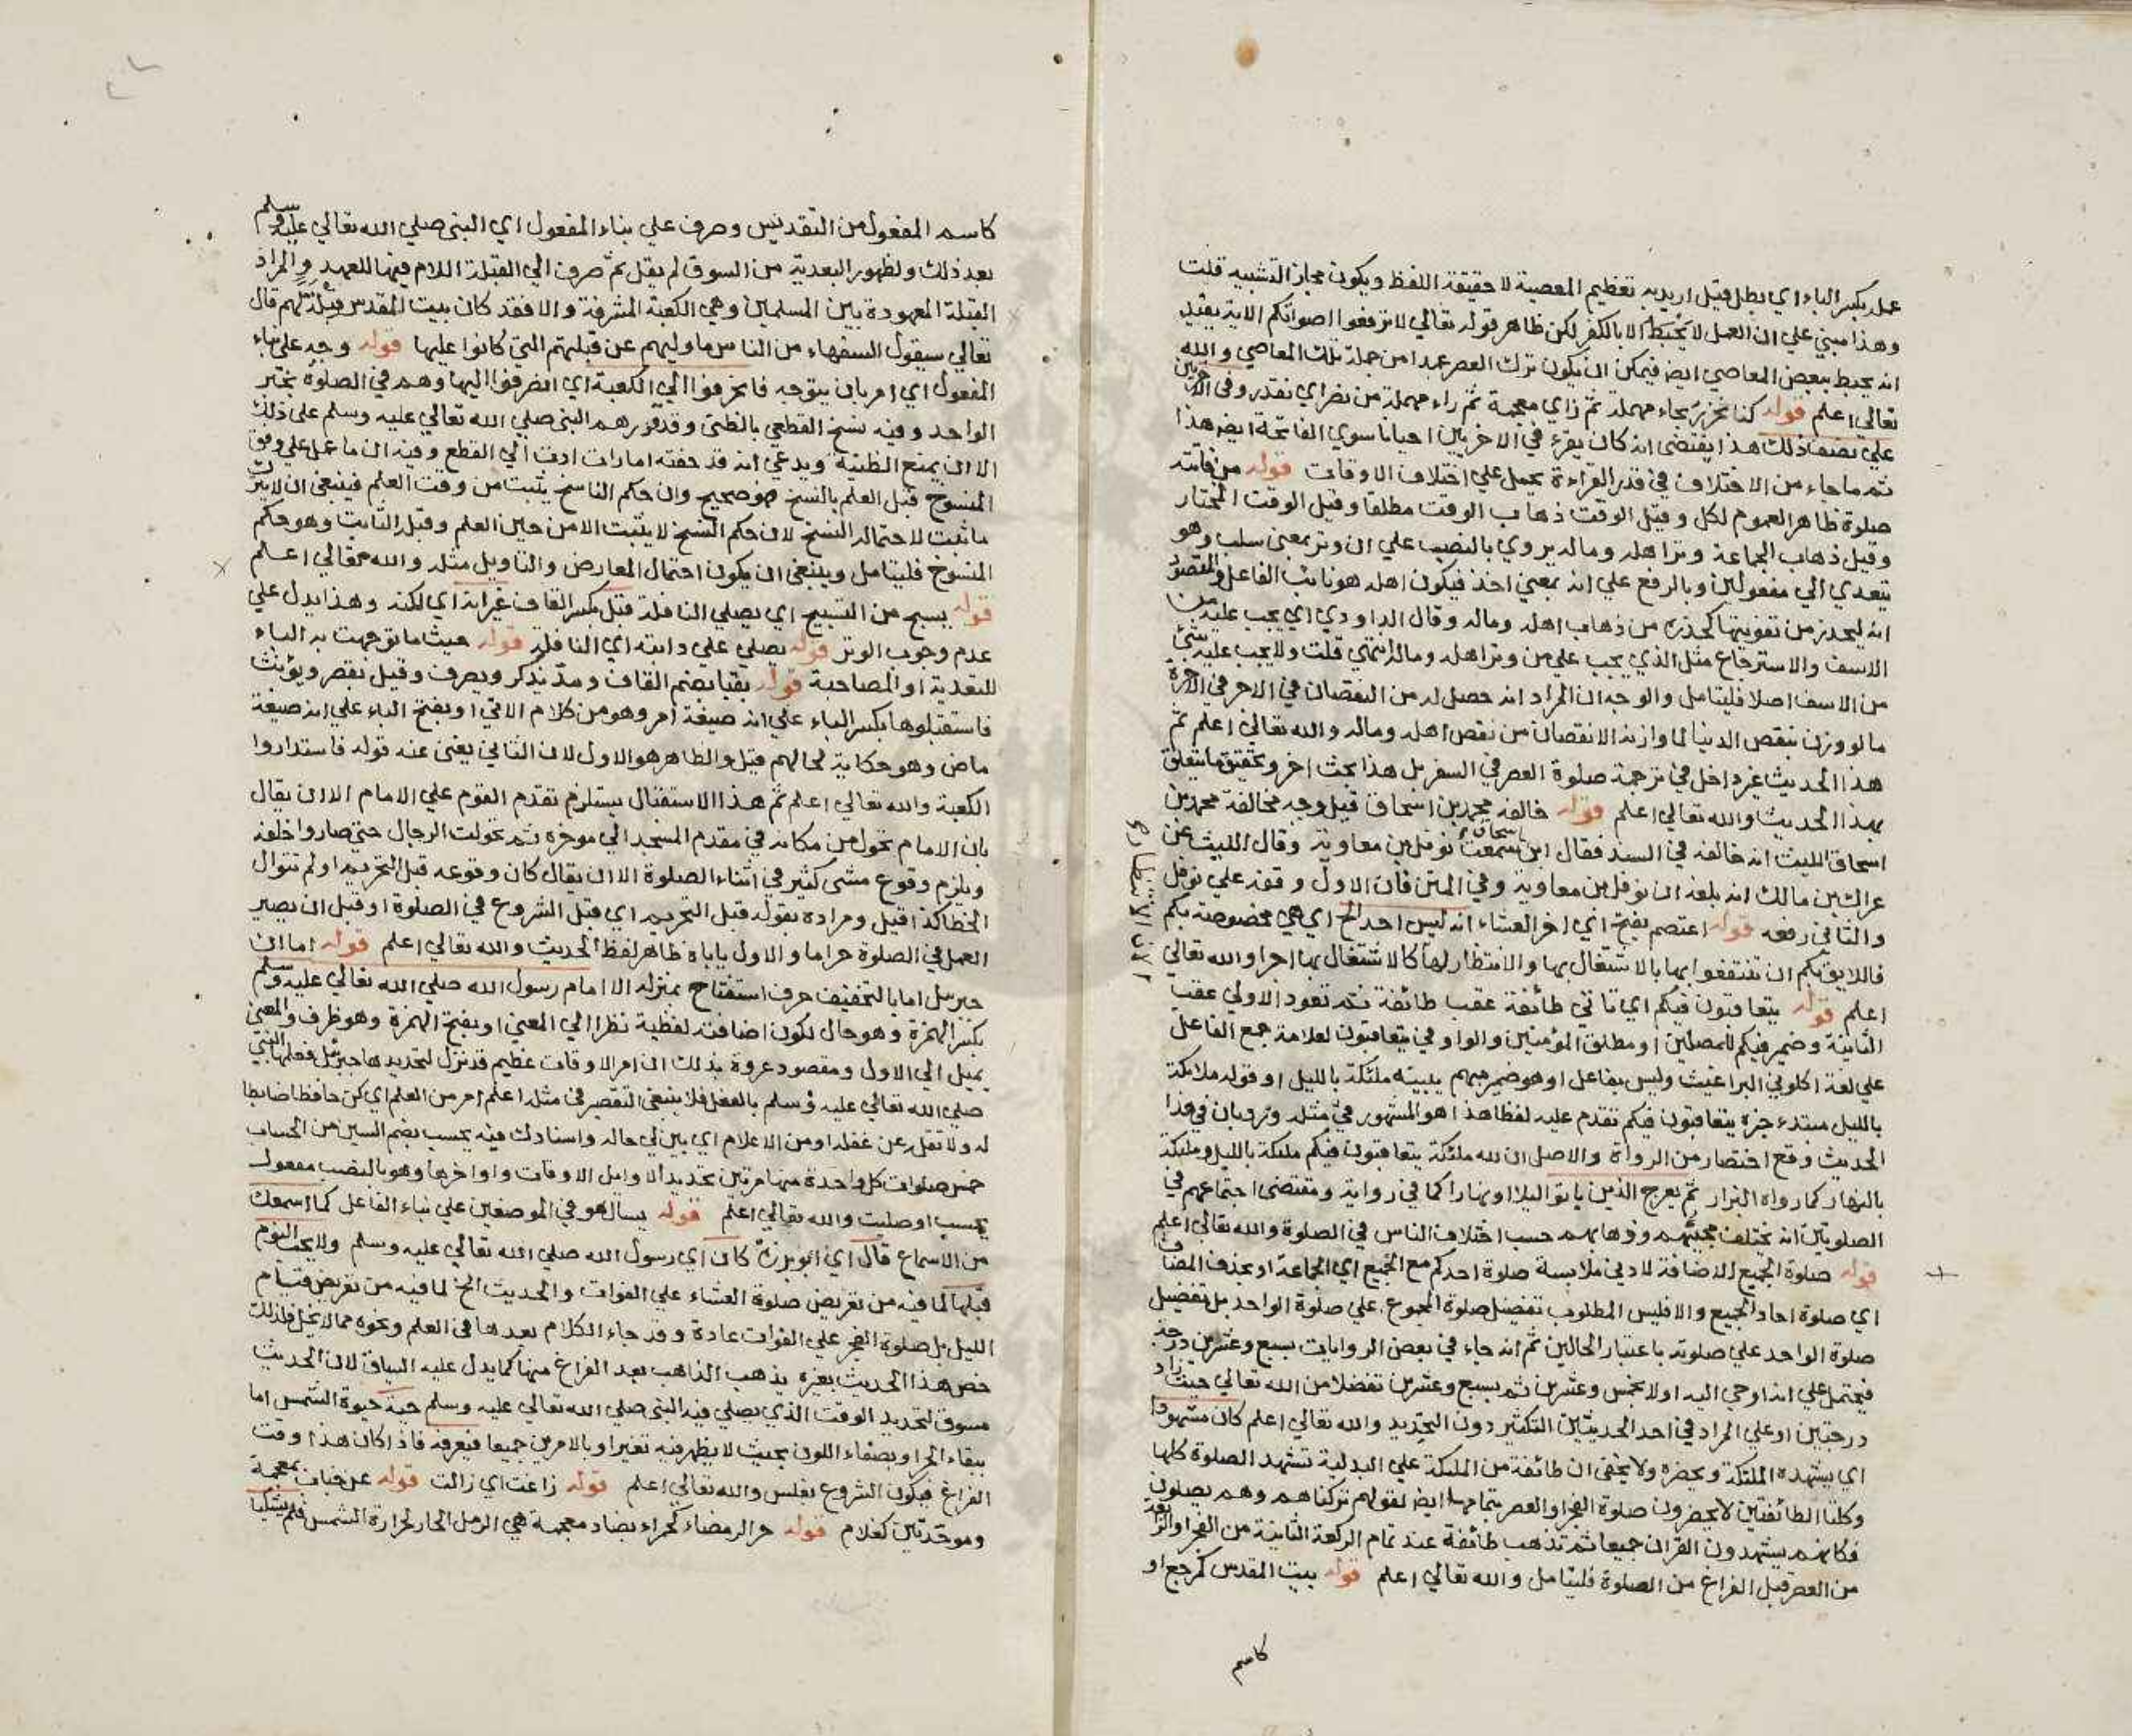 عمله بكسر الباء اي بطل قيل اريد به تعظيم المعصية لا حقيقة اللفظ ويكون مجاز التشبيه قلت
وهذا مبني علي ان العمل لا يحبط الا بالكفر لكن ظاهر قوله تعالي لا ترفعوا اصواتكم الاية يفيد
انه يحبط ببعض المعاصي ايضا فيمكن ان يكون ترك العصر عمدا من جملة تلك المعاصي والله
تعالي اعلم قوله كنا نحزر بحاء مهملة ثم زاي معجمة ثم راء مهملة من نصر اي نقدر وفي الاخريين
علي نصف ذلك هذا يقتضي انه كان يقرء في الاخريين احيانا سوي الفاتحة ايضا هذا
ثم ما جاء من الاختلاف في قدر القراءة يحمل علي اختلاف الاوقات قوله من فاتته
صلوة ظاهر العموم لكل وقيل الوقت ذهاب الوقت مطلقا وقيل الوقت المختار
وقيل ذهاب الجماعة وتر اهله وماله يروي بالنصب علي ان وتر بمعني سلب وهو
يتعدي الي مفعولين وبالرفع علي انه بمعني اخذ فيكون اهله هو نائب الفاعل والمقصود
انه ليحذر من تفويتها كحذره من ذهاب اهله وماله وقال الداودي اي يجب عليه من
الاسف والاسترجاع مثل الذي يجب علي من وتر اهله وماله انتهي قلت ولا يجب عليه شئ
من الاسف اصلا فليتامل والوجه ان المراد انه حصل له من النقصان في الاجر في الاخرة
ما لو وزن بنقص الدنيا لما وازنه الا نقصان من نقص اهله وماله والله تعالي اعلم ثم
هذا الحديث غير داخل في ترجمة صلوة العصر في السفر بل هذا بحث اخر وتحقيق ما يتعلق
بهذا الحديث والله تعالي اعلم قوله خالفه محمد بن اسحاق قيل وجه مخالفة محمد بن
اسحاق الليث انه خالفه في السند فقال ابن اسحاق سمعت نوفل بن معاوية وقال الليث عن
عراك بن مالك انه بلغه ان نوفل بن معاوية وفي المتن فان الاول وقفه علي نوفل
والثاني رفعه قوله اعتم بفتح اي اخر العشاء انه ليس احد الخ اي هي مخصوصة بكم
فاللايق بكم ان تنتفعوا بها بالاشتغال بها والانتظار لها كالاشتغال بها اجرا والله تعالي
اعلم قوله يتعاقبون فيكم اي تاتي طائفة عقب طائفة ثم تعود الاولي عقب
الثانية وضمير فيكم للمصلين او مطلق المؤمنين والواو في يتعاقبون لعلامة جمع الفاعل
علي لغة اكلوني البراغيث وليس بفاعل او هو ضمير مبهم يبينه ملئكة بالليل او قوله ملائكة
بالليل مبتدء خبره يتعاقبون فيكم تقدم عليه لفظا هذا هو المشهور في مثله ورد بان في هذا
الحديث وقع اختصار من الرواة والاصل ان لله ملئكة يتعاقبون فيكم ملئكة بالليل وملئكة
بالنهار كما رواه البزار ثم يعرج الذين باتوا ليلا او نهارا كما في رواية ومقتضي اجتماعهم في
الصلوتين انه يختلف مجيئهم وذهابهم حسب اختلاف الناس في الصلوة والله تعالي اعلم
قوله صلوة الجميع الاضافة لادني ملابسة صلوة احدكم مع الجميع اي الجماعة او بحذف المضاف
اي صلوة احاد الجميع والا فليس المطلوب تفضيل صلوة المجموع علي صلوة الواحد بل تفضيل
صلوة الواحد علي صلوته باعتبار الحالين ثم انه جاء في بعض الروايات بسبع وعشرين درجة
فيحتمل علي انه اوحي اليه اولا بخمس وعشرين ثم بسبع وعشرين تفضلا من الله تعالي حيث زاد
درجتين او علي المراد في احد الحديثين التكثير دون التحديد والله تعالي اعلم كان مشهودا
اي يشهده الملئكة ويحضره ولا يخفي ان طائفة من الملئكة علي البدلية تشهد الصلوة كلها
وكلتا الطائفتين لا يحضرون صلوة الفجر او العصر بتمامها ايضا لقولهم تركناهم وهم يصلون
فكانهم يشهدون القران جميعا ثم تذهب طائفة عند تمام الركعة الثانية من الفجر او الرابعة
من العصر قبل الفراغ من الصلوة فليتامل والله تعالي اعلم قوله بيت المقدس كمرجع او
كاسم
كاسم المفعول من التقديس وصرف علي بناء المفعول اي النبي صلي الله تعالي عليه وسلم
بعد ذلك ولظهور البعدية من السوق لم يقل ثم صرف الي القبلة اللام فيها للعهد والمراد
القبلة المعهودة بين المسلمين وهي الكعبة المشرفة والا فقد كان بيت المقدس قبلة لهم قال
تعالي سيقول السفهاء من الناس ما وليهم عن قبلتهم التي كانوا عليها قوله وجه علي بناء
المفعول اي امر بان يتوجه فانحرفوا الي الكعبة اي انصرفوا اليها وهم في الصلوة بخبر
الواحد وفيه نسخ القطعي بالظني وقد قررهم النبي صلي الله تعالي عليه وسلم علي ذلك
الا ان يمنع الظنية ويدعي انه قد حفته امارات ادت الي القطع وفيه ان ما عمل علي وفق
المنسوخ قبل العلم بالنسخ فهو صحيح وان حكم الناسخ يثبت من وقت العلم فينبغي ان لا يترك
ما ثبت لاحتمال النسخ لان حكم النسخ لا يثبت الا من حين العلم وقبل الثابت وهو حكم
المنسوخ فليتامل وينبغي ان يكون احتمال المعارض والتاويل مثله والله تعالي اعلم
قوله يسبح من التسبيح اي يصلي النافلة قبل بكسر القاف غير انه اي لكنه وهذا يدل علي
عدم وجوب الوتر قوله يصلي علي دابته اي النافلة قوله حيث ما توجهت به الباء
للتعدية او المصاحبة قوله بقبا بضم القاف ومد يذكر ويصرف وقيل بقصر ويؤنث
فاستقبلوها بكسر الباء علي انه صيغة امر وهو من كلام الاتي او بفتح الباء علي انه صيغة
ماض وهو حكاية لحالهم قيل والظاهر هو الاول لان الثاني يغني عنه قوله فاستداروا
الكعبة والله تعالي اعلم ثم هذا الاستقبال يستلزم تقدم القوم علي الامام الا ان يقال
بان الامام تحول من مكانه في مقدم المسجد الي موخره ثم تحولت الرجال حتي صاروا خلفه
ويلزم وقوع مشي كثير في اثناء الصلوة الا ان يقال كان وقوعه قبل التحريم او لم تتوال
الخطا كذا قيل ومراده بقوله قبل التحريم اي قبل الشروع في الصلوة او قبل ان يصير
العمل في الصلوة حراما والاول ياباه ظاهر لفظ الحديث والله تعالي اعلم قوله اما ان
جبرئيل اما بالتخفيف حرف استفتاح بمنزلة الا امام رسول الله صلي الله تعالي عليه وسلم
بكسر الهمزة وهو حال لكون اضافته لفظية نظرا الي المعني او بفتح الهمزة وهو ظرف والمعني
يميل الي الاول ومقصود عروة بذلك ان امر الاوقات عظيم قد نزل لتحديدها جبرئيل فعلمها النبي
صلي الله تعالي عليه وسلم بالفعل فلا ينبغي التقصير في مثله اعلم امر من العلم اي كن حافظا ضابطا
له ولا تقل عن غفلة او من الاعلام اي بين لي حاله واسنادك فيه يحسب بضم السين من الحساب
خمس صلوات كل واحدة منها مرتين تحديد الاوايل الاوقات واواخرها وهو بالنصب مفعول
يحسب او صليت والله تعالي اعلم قوله يسال هو في الموضعين علي بناء الفاعل كما اسمعك
من الاسماع قال اي ابو برزة كان اي رسول الله صلي الله تعالي عليه وسلم ولا يحب النوم
قبلها لما فيه من تعريض صلوة العشاء علي الفوات والحديث الخ لما فيه من تعريض قيام
الليل بل صلوة الفجر علي الفوات عادة وقد جاء الكلام بعدها في العلم ونحوه مما لا يخل فلذلك
خص هذا الحديث بغيره يذهب الذاهب بعد الفراغ منها كما يدل عليه السياق لان الحديث
مسوق لتحديد الوقت الذي يصلي فيه النبي صلي الله تعالي عليه وسلم حية حيوة الشمس اما
ببقاء الحر او بصفاء اللون بحيث لا يظهر فيه تغير او بالامرين جميعا فيعرفه فاذا كان هذا وقت
الفراغ فيكون الشروع بغلس والله تعالي اعلم قوله زاغت اي زالت قوله عن خباب بمعجمة
وموحدتين كغلام قوله حر الرمضاء كحمراء بضاد معجمة هي الرمل الحار لحرارة الشمس فلم يشكنا